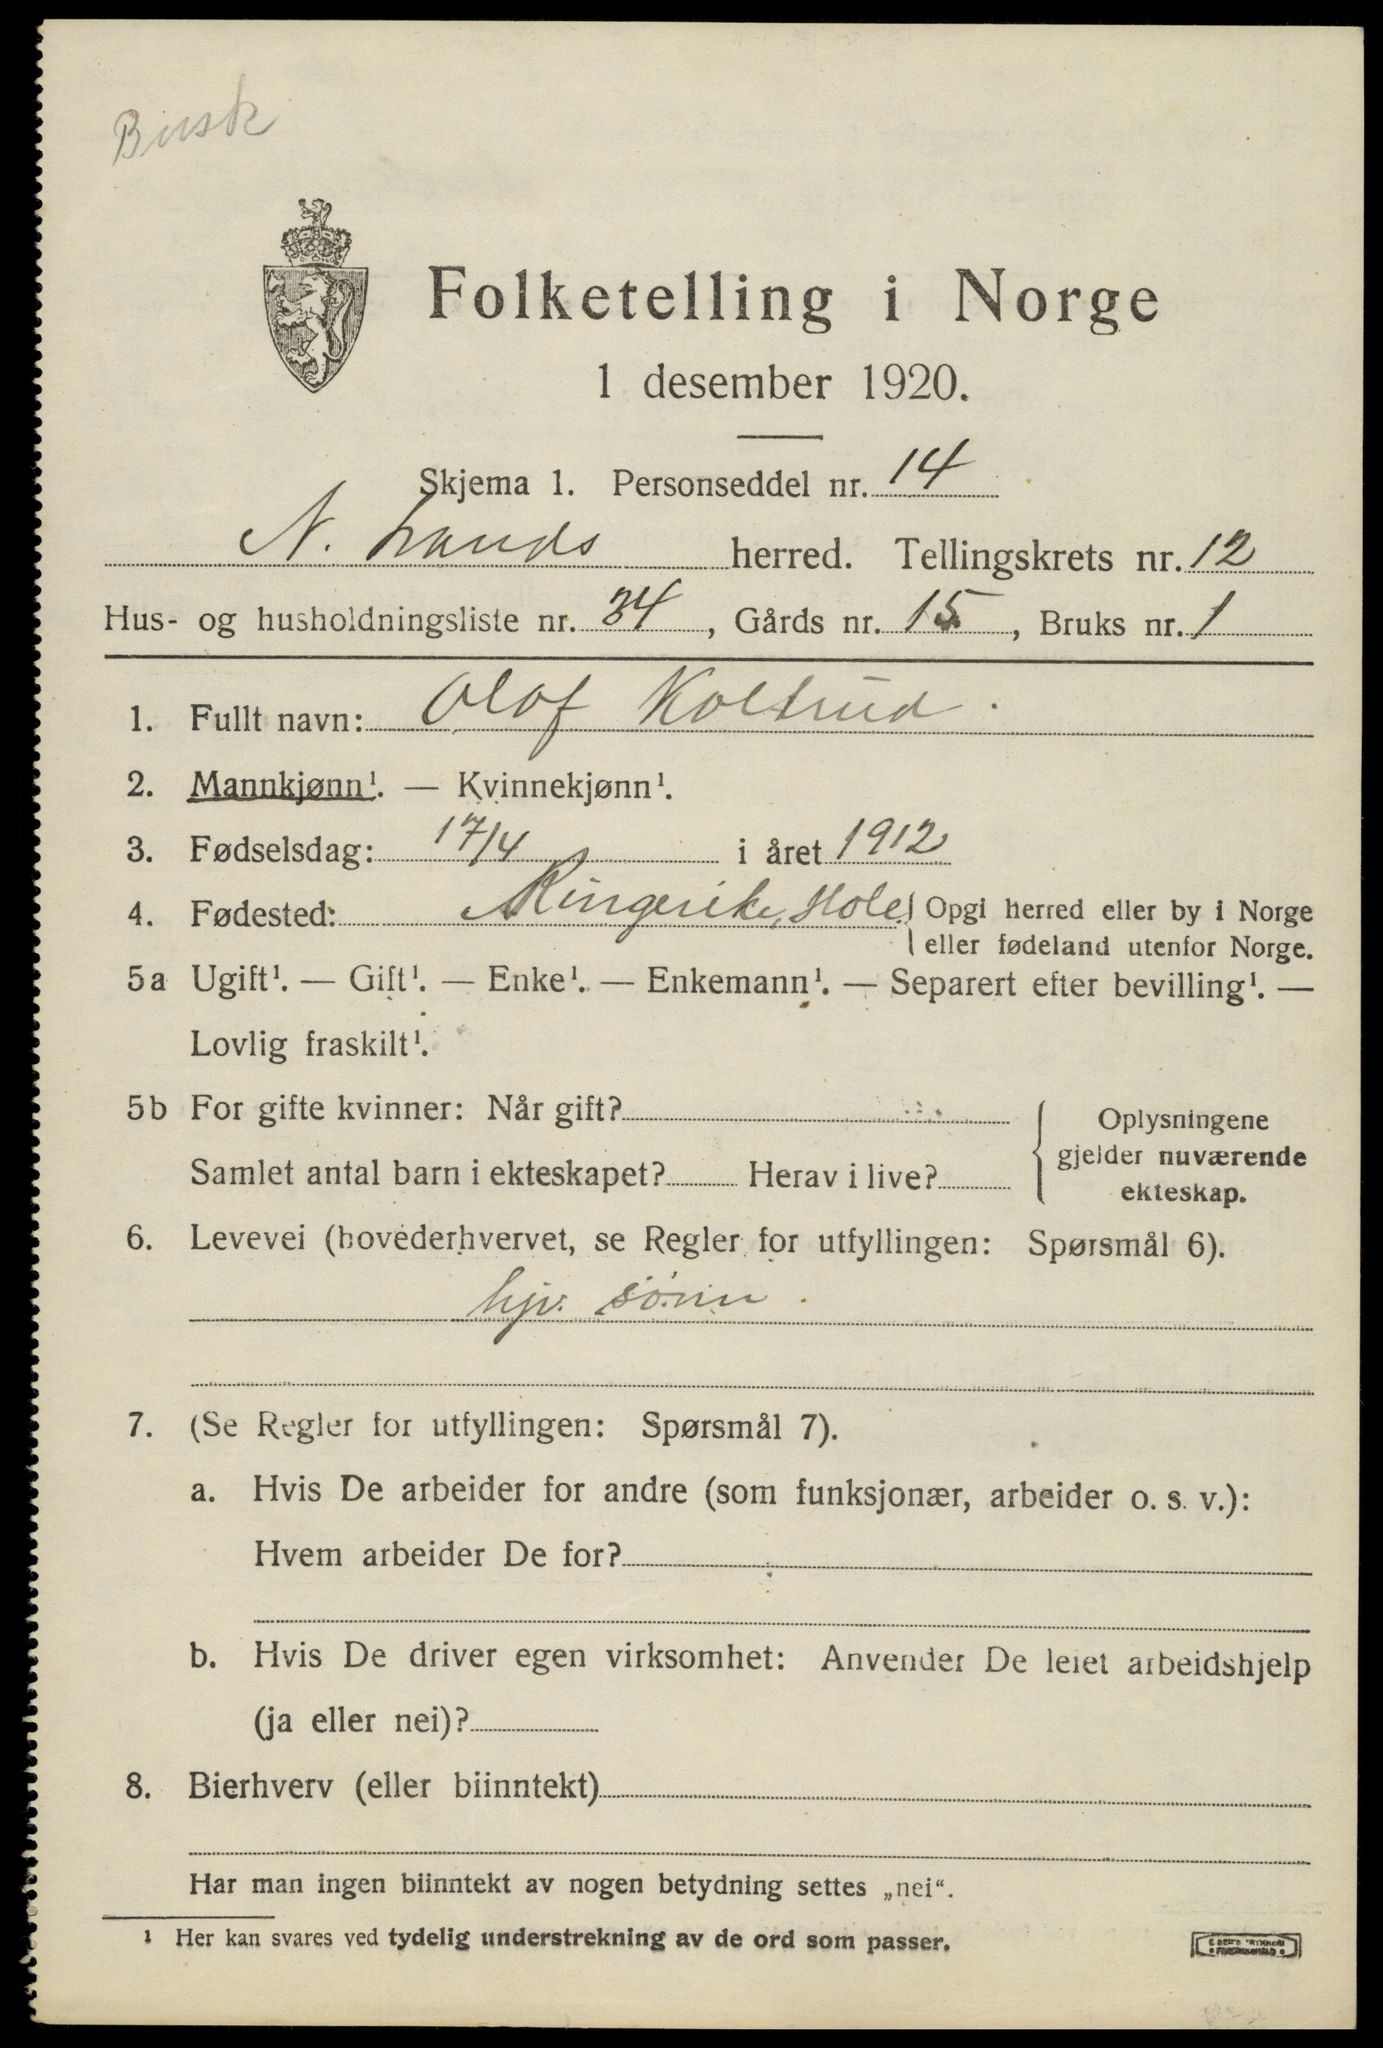 Busk
Folketelling i Norge
1 desember 1920.
Skjema 1. Personseddel nr. 14
N. Lands herred. Tellingskrets nr. 12
Hus- og husholdningsliste nr. 34, Gårds nr. 15, Bruks nr. 1
1. Fullt navn: Olof Koltrud.
2. Mannkjønn¹. — Kvinnekjønn¹.
3. Fødselsdag: 17/4 i året 1912
4. Fødested: Ringerike, Hole Opgi herred eller by i Norge
eller fødeland utenfor Norge.
5a Ugift¹. — Gift¹. — Enke¹. — Enkemann¹. — Separert efter bevilling¹. —
Lovlig fraskilt¹.
5b For gifte kvinner: Når gift?
Samlet antal barn i ekteskapet? Herav i live?
Oplysningene
gjelder nuværende
ekteskap.
6. Levevei (hovederhvervet, se Regler for utfyllingen: Spørsmål 6).
hjv. sønn.
7. (Se Regler for utfyllingen: Spørsmål 7).
a. Hvis De arbeider for andre (som funksjonær, arbeider o. s. v.):
Hvem arbeider De for?
b. Hvis De driver egen virksomhet: Anvender De leiet arbeidshjelp
(ja eller nei)?
8. Bierhverv (eller biinntekt)
Har man ingen biinntekt av nogen betydning settes „nei“.
¹ Her kan svares ved tydelig understrekning av de ord som passer.